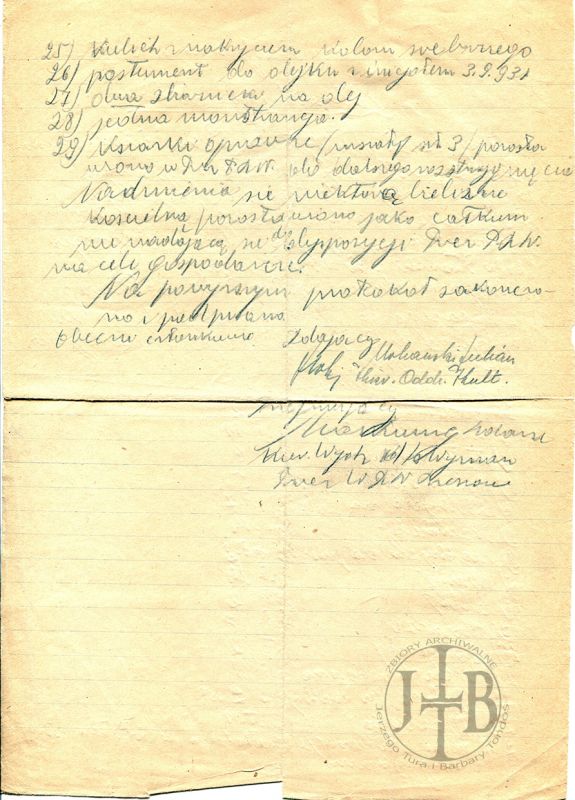 25) Kielich z nakryciem kolom srebrnego
26) postument do olejku z inicjałem 3.9.931
27) dwa zbiorniczki na olej
28) jedna monstrancja.
29) Książki oprawne / mszały szt 3 / pozosta
wiono w Prez P.R.N. do dalszego
Nadmienia się niektórą bieliznę
Kościelną pozostawiono jako całkiem
nie nadającą się do dyspozycji Prez P.R.N.
na cele gospodarcze.
Na powyższym protokół zakończo-
no i podpisano
Obecni członkowie Zdający
Julian
Kier. Oddz. Kult.
Przyjmujący
Kier. Wydz.
Prez W.R.N. Rzeszów
ZBIORY ARCHIWALNE
JTB
Jerzego Tura i Barbary Tondos